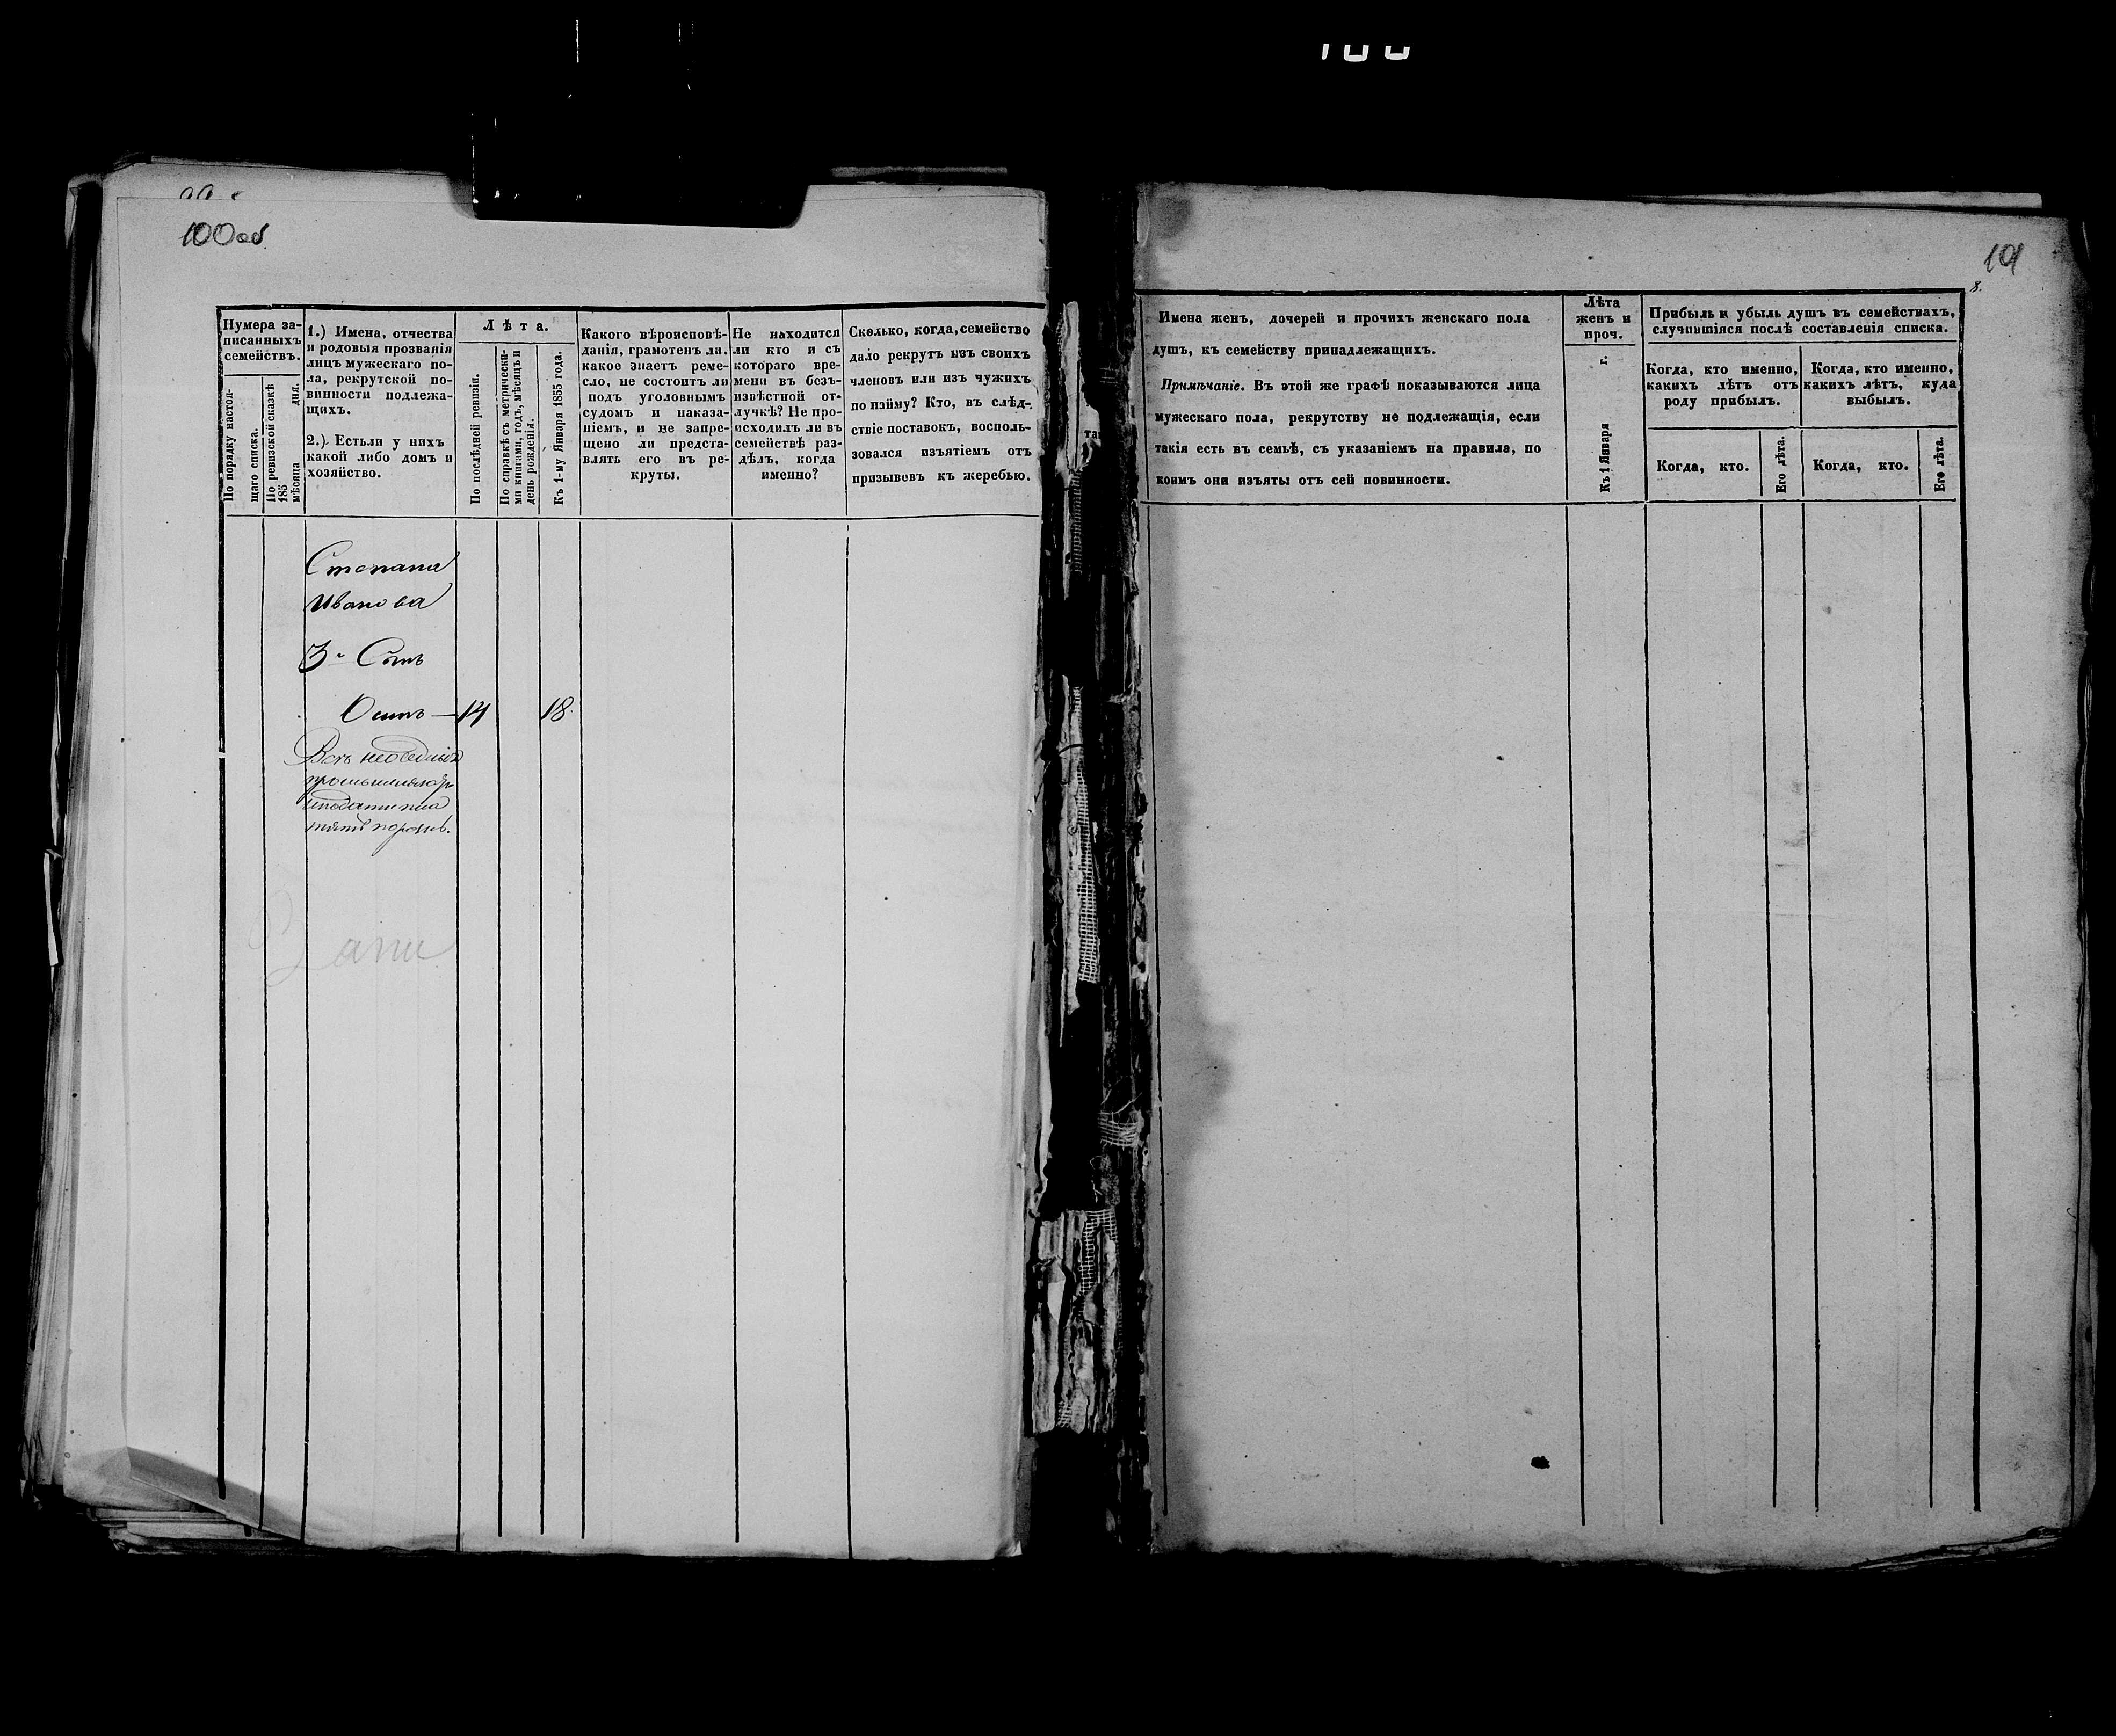 100об.
Нумера за-
писанныхъ
семействъ.
По порядку настоя-
щаго списка.
По ревизской сказкѣ
185
мѣсяца дня.
1.) Имена, отчества
и родовыя прозванія
лицъ мужескаго по-
ла, рекрутской по-
винности подлежа-
щихъ.
2.) Естьли у нихъ
какой либо домъ и
хозяйство.
Лѣта.
По послѣдней ревизіи.
По справкѣ съ метрически-
ми книгами, годъ, мѣсяцъ и
день рожденія.
Къ 1-му Января 1855 года.
Какого вѣроисповѣ-
данія, грамотенъ ли,
какое знаетъ реме-
сло, не состоитъ ли
подъ уголовнымъ
судомъ и наказа-
ніемъ, и не запре-
щено ли предста-
влять его въ ре-
круты.
Не находится
ли кто и съ
котораго вре-
мени въ безъ-
извѣстной от-
лучкѣ? Не про-
исходилъ ли въ
семействѣ раз-
дѣлъ, когда
именно?
Сколько, когда, семейство
дало рекрутъ изъ своихъ
членовъ или изъ чужихъ
по найму? Кто, въ слѣд-
ствіе поставокъ, восполь-
зовался изъятіемъ отъ
призывовъ къ жеребью.
Степана
Иванова
3й Сынъ
Осипъ — 14 18.
101
8.
Имена женъ, дочерей и прочихъ женскаго пола
душъ, къ семейству принадлежащихъ.
Примѣчаніе. Въ этой же графѣ показываются лица
мужескаго пола, рекрутству не подлежащія, если
такія есть въ семьѣ, съ указаніемъ на правила, по
коимъ они изъяты отъ сей повинности.
Лѣта
женъ и
проч.
Къ 1 Января г.
Прибыль и убыль душъ въ семействахъ,
случившіяся послѣ составленія списка.
Когда, кто именно,
какихъ лѣтъ отъ
роду прибылъ.
Когда, кто именно,
какихъ лѣтъ, куда
выбылъ.
Когда, кто.
Его лѣта.
Когда, кто.
Его лѣта.